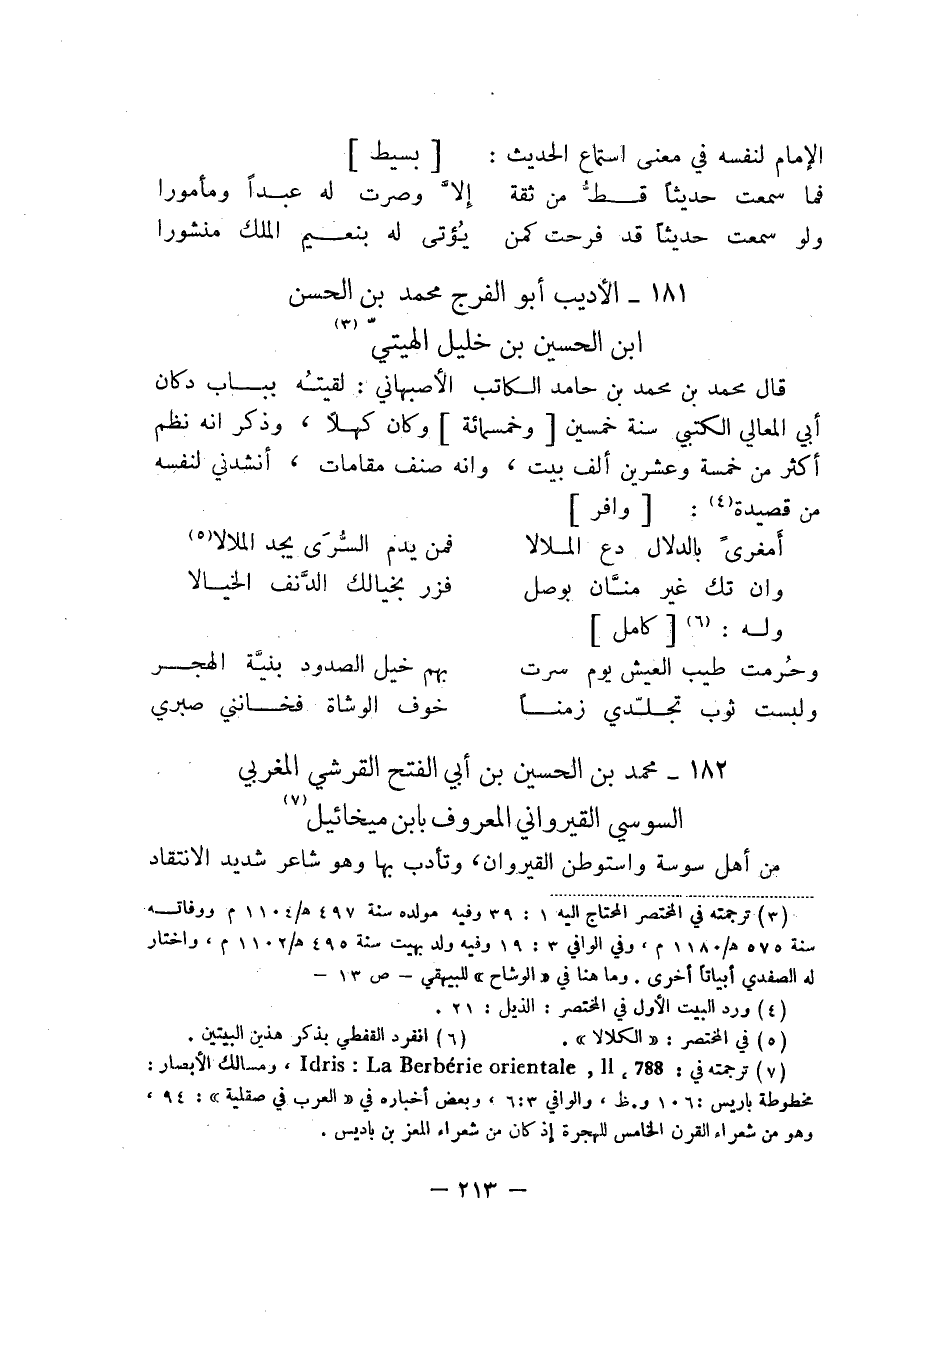 الإمام لنفسه في معنى استماع الحديث : [ بسيط ]
فما سمعت حديثاً قــط من ثقة إلا وصرت له عبـداً ومأمورا
ولو سمعت حديثاً قد فرحت كمن يُؤتى له بنعـيم الملك منشورا
١٨١ ـ الأديب أبو الفرج محمد بن الحسن
ابن الحسين بن خليل الهيتيّ (٣)
قال محمد بن محمد بن حامد الكاتب الأصبهاني : لقيتُه ببـاب دكان
أبي المعالي الكتبي سنة خمسين [ وخمسمائة ] وكان كهلاً ، وذكر انه نظم
أكثر من خمسة وعشرين ألف بيت ، وانه صنف مقامات ، أنشدني لنفسه
من قصيدة(٤) : [ وافر ]
أمغرىً بالدلال دع المـلالا فمن يدم السُّرَى يجد الملالا(٥)
وان تك غير منّـان بوصل فزر بخيالك الدَّنف الخيـالا
ولـه : (٦) [ كامل ]
وحُرمت طيب العيش يوم سرت بهم خيل الصدود بنيَّة الهجـر
ولبست ثوب تجلّـدي زمنـاً خوف الوشاة فخـانني صبري
١٨٢ ـ محمد بن الحسين بن أبي الفتح القرشي المغربي
السوسي القيرواني المعروف بابن ميخائيل(٧)
من أهل سوسة واستوطن القيروان، وتأدب بها وهو شاعر شديد الانتقاد
(٣) ترجمته في المختصر المحتاج اليه ١ : ٣٩ وفيه مولده سنة ٤٩٧ ه/١١٠٤ م ووفاتـه
سنة ٥٧٥ ه/١١٨٠ م ، وفي الوافي ٣ : ١٩ وفيه ولد بهيت سنة ٤٩٥ ه/١١٠٢ م ، واختار
له الصفدي أبياتاً أخرى . وما هنا في « الوشاح » للبيهقي – ص ١٣ –
(٤) ورد البيت الأول في المختصر : الذيل : ٢١ .
(٥) في المختصر : « الكلالا » . (٦) انفرد القفطي بذكر هذين البيتين .
(٧) ترجمته في : Idris : La Berbérie orientale , II ، 788 ، ومسالك الأبصار :
مخطوطة باريس :١٠٦ و.ظ ، والوافي ٦:٣ ، وبعض أخباره في « العرب في صقلية » : ٩٤ ،
وهو من شعراء القرن الخامس للهجرة إذ كان من شعراء المعز بن باديس .
– ٢١٣ –